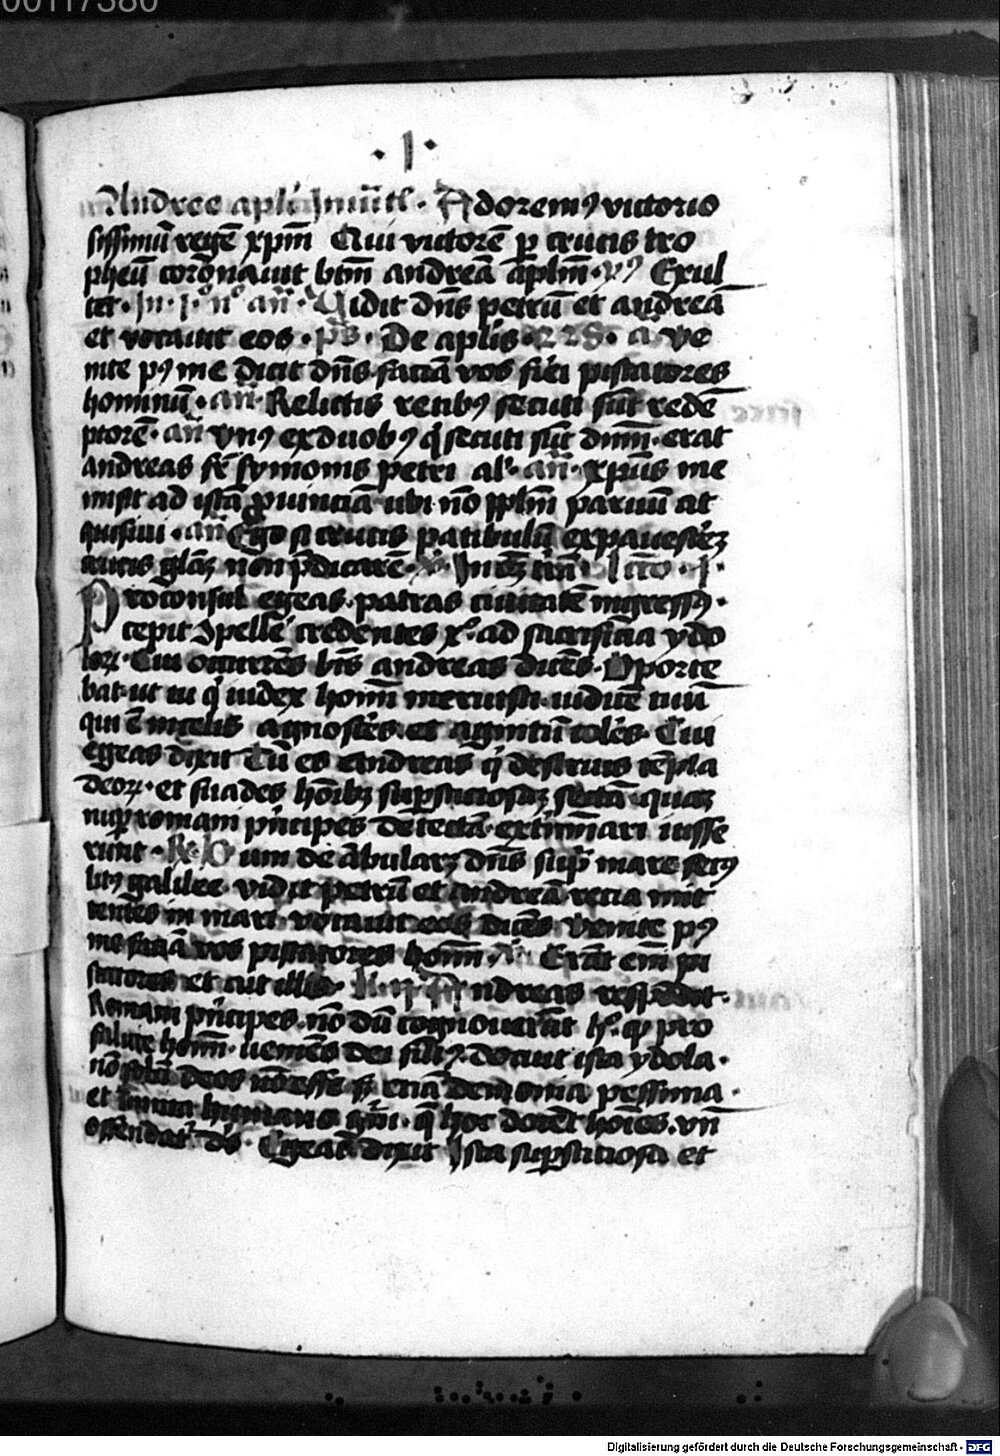 00117380
· I ·
Andree apl'i Inuit'. Adorem9 victorio
sissimū regē xpm̄ Qui victorē p crucis tro
pheū coronauit btm̄ andreā apl̄m. p9 Exul
tet. In . I . n° an̄ . Vidit dn̄s petrū et andreā
et vocauit eos . ps̄ . De apl̄is . a Ve
nite p9 me dicit dn̄s faciā vos fieri piscatores
hominū . an̄ Relictis retib9 secuti sūt redē
ptorē . an̄ vn9 ex duob9 q̇ secuti sūt dnm̄ . erat
andreas fr̄ symonis petri al'. an̄ . xp̄us me
misit ad istā ꝓuinciā ubi nō pplm̄ paruū ac
quisiui . an̄ Ego si crucis patibulū expauescerē
crucis gl̄aꝫ non p̄dicarē. Lc̄tio . I .
Proconsul egeas patras ciuitatē ingress9 .
cepit 9pellē credentes x° . ad sacrificia ydo
loꝝ . Cui occurrēs bt̄s andreas dicēs . Oporte
bat ut tu q̇ iudex hom̄ meruisti . iudicē tuū
qui ē in celis agnoscēs . et agnitū colēs . Cui
egeas dixit Tu es andreas q̇ destruis tēpla
deoꝝ . et suades hom̄ibꝫ supsticiosaꝫ sectā quaꝫ
nup romani p̄ncipes detectā ext̄minari iusse
runt . R̄ Dum deābularꝫ dn̄s sup̄ mare secus
litꝫ galilee vidit petrū et andreā recia mit
tentes in mari vocauit eos dicēs Venite p9
me faciā vos piscatores hom̄ . Erāt em̄ pi
scatores et ait illis . Andreas respōdit .
Romani p̄ncipes . nō dū cognouerāt h° . qp pro
salute hom̄ . veniēs dei fili9 docuit ista ydola .
nō solū deos nō esse sꝫ eciā demonia pessima .
et inimica humano gn̄i . q̄ hoc docēt hoīes . vn̄
offendat' d's . Egeas dixit Ista supsticiosa et
Digitalisierung gefördert durch die Deutsche Forschungsgemeinschaft - DFG